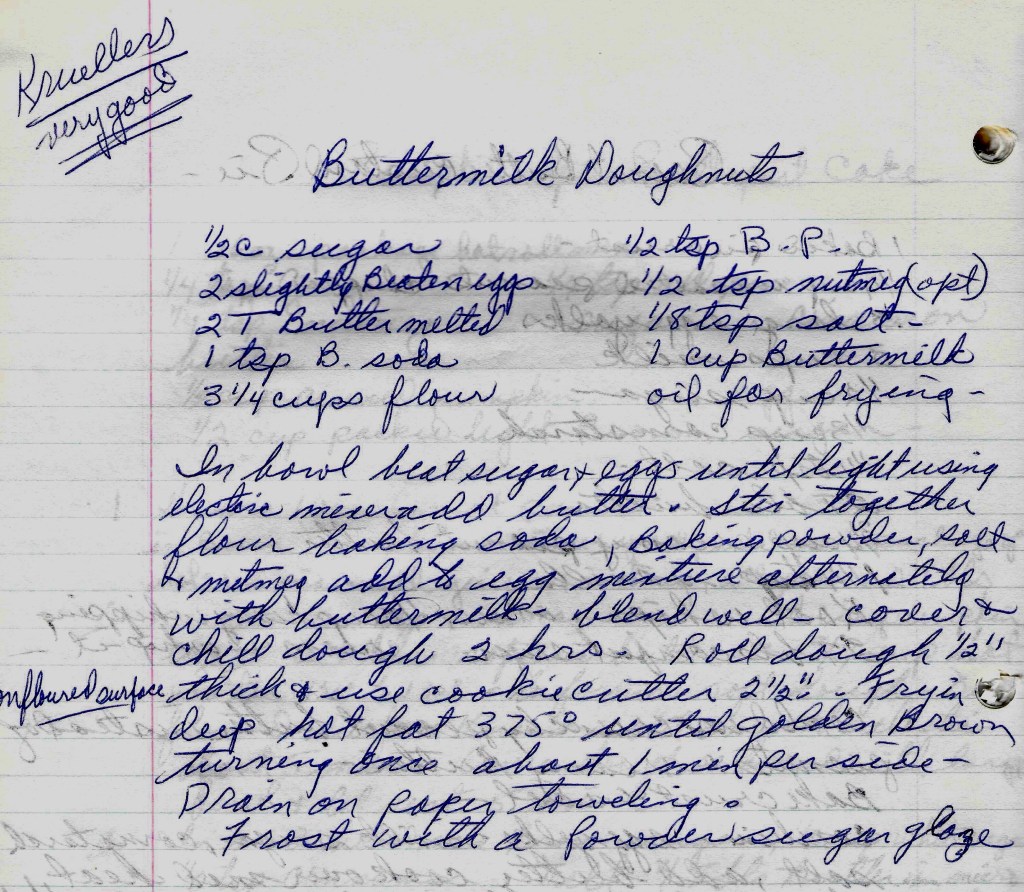 Kruellers
very good
Buttermilk Doughnuts
1/2 c sugar
2 slightly Beaten eggs
2 T Butter melted
1 tsp B. soda
3 1/4 cups flour
1/2 tsp B.P.
1/2 tsp nutmeg (opt)
1/8 tsp salt -
1 cup Buttermilk
oil for frying -
In bowl beat sugar & eggs until light using
electric mixer add butter. Stir together
flour baking soda, Baking powder, salt
& nutmeg add to egg mixture alternately
with buttermilk - blend well - cover &
chill dough 2 hrs. Roll dough 1/2"
on floured surface
thick & use cookie cutter 2 1/2". Fry in
deep hot fat 375° until golden Brown
turning once about 1 min per side -
Drain on paper toweling.
Frost with a powder sugar glaze